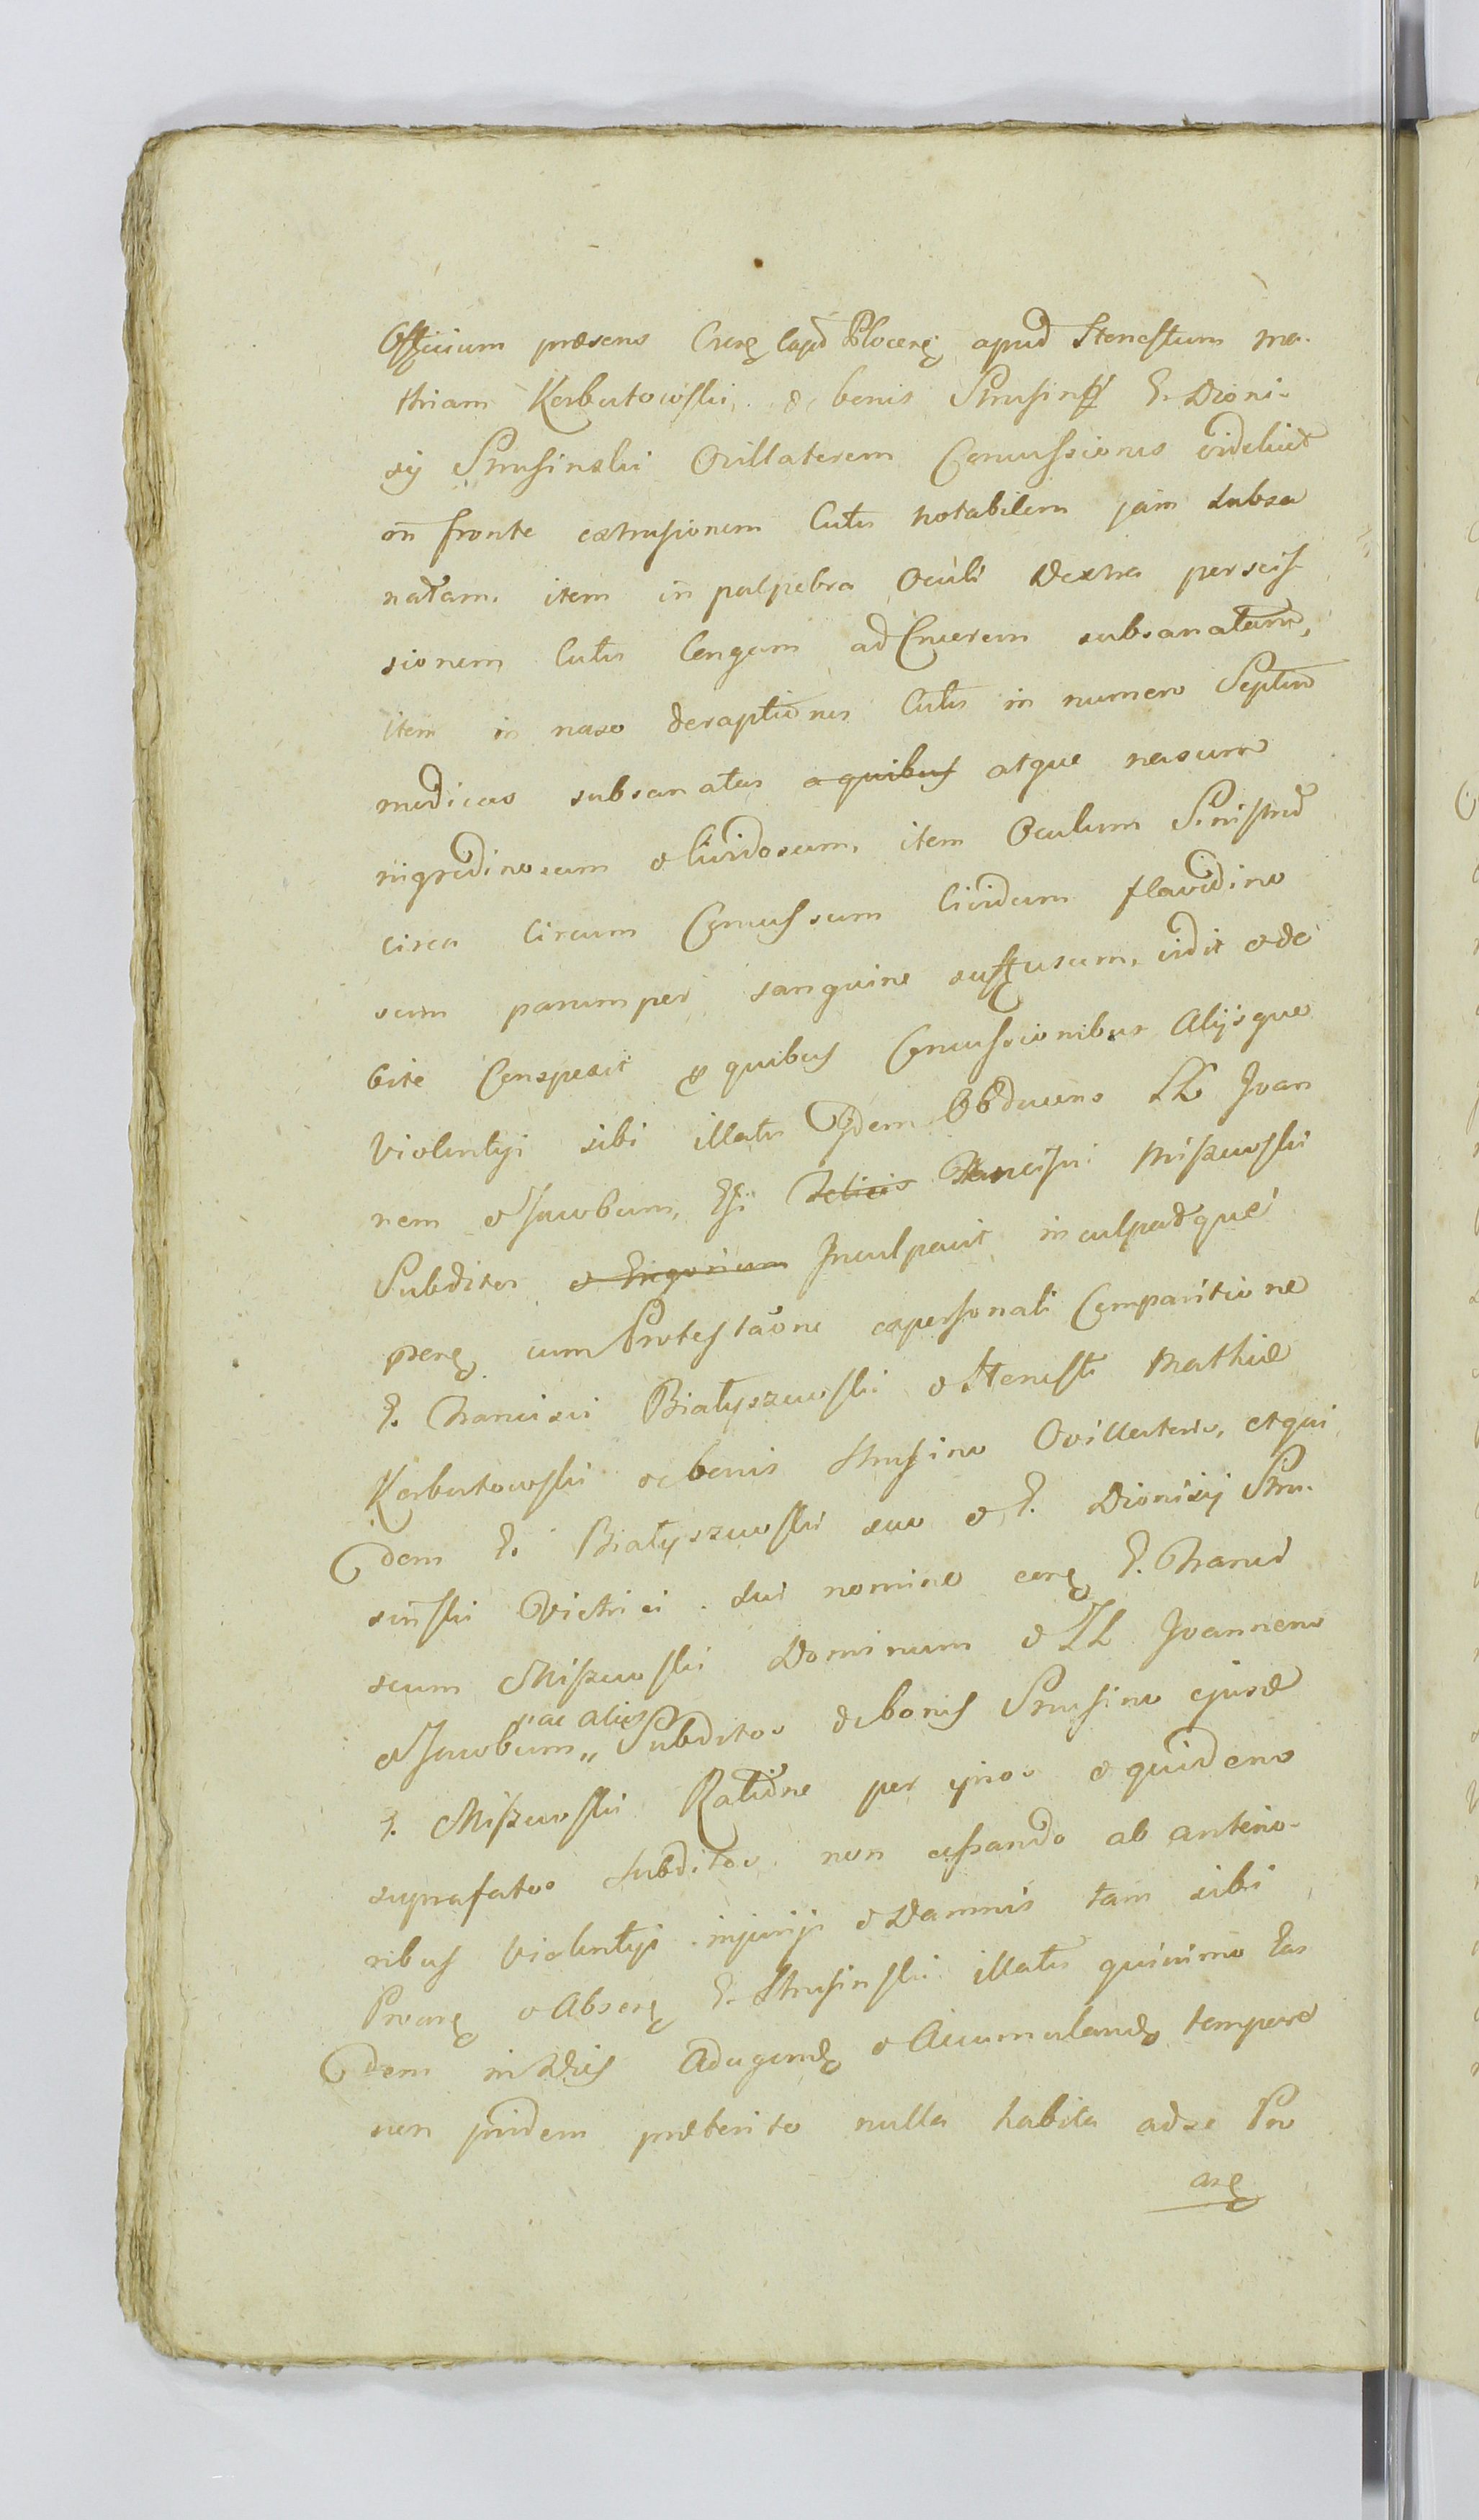 Officium præsens Crens Capt Plocens apud Honestum Ma-
thiam Karbutowski de bonis Strusino G. Dioni-
sij Strusinski Ovillatorem Concussiones videlicet
in fronte extrusionem Cutis notabilem jam subsa
natam. item in palpebra Oculi Dextra perscis
sionem Cutis longam ad Cruorem subsanatam,
item in naso deraptiones Cutis in numero Septem
modicas subsanatas a quibus atque nasum
nigredinosum & lividosum. item Oculum Sinistrum
circa Circum Concussum lividum flavedino
sum parumper sanguine suffusum, vidit & de
bite Conspexit de quibus Concussionibus Alijsque
violentijs sibi illatis Idem Obducens LL Joan
nem & Jacobum, Gsi Francisci Miszewski
Subditos & Grigorium Inculpavit inculpatque
prens cum Protestaone ex personali Comparitione
G. Francisci Białyszewski & Honesti Mathiæ
Karbutowski de bonis Strusino Ovillatoris, et qui
dem G. Białyszewski suo & G. Dionisij Stru-
sinski Victrici sui nomine cons G. Franci
scum Miszewski Dominum & LL Joannem
& Jacobum „ac alios„ Subditos de bonis Strusino ejusd
G. Miszewski Ratione per ipsos & quidem
suprafatos Subditos non cessando ab anterio-
ribus violentijs injurijs & Damnis tam sibi
Proans & Absens G. Strusinski illatis quinimo Ea
dem in Dies Adaugendo & Accumulando tempore
non pridem præterito nulla habita ad se Pro
ans